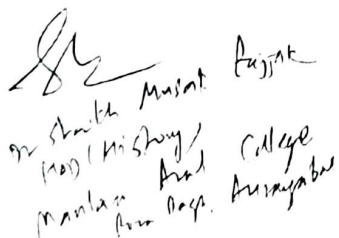 Dr Shaikh Musak Rajjak
HOD (History)
Maulana Azad College
Roza Bagh, Aurangabad